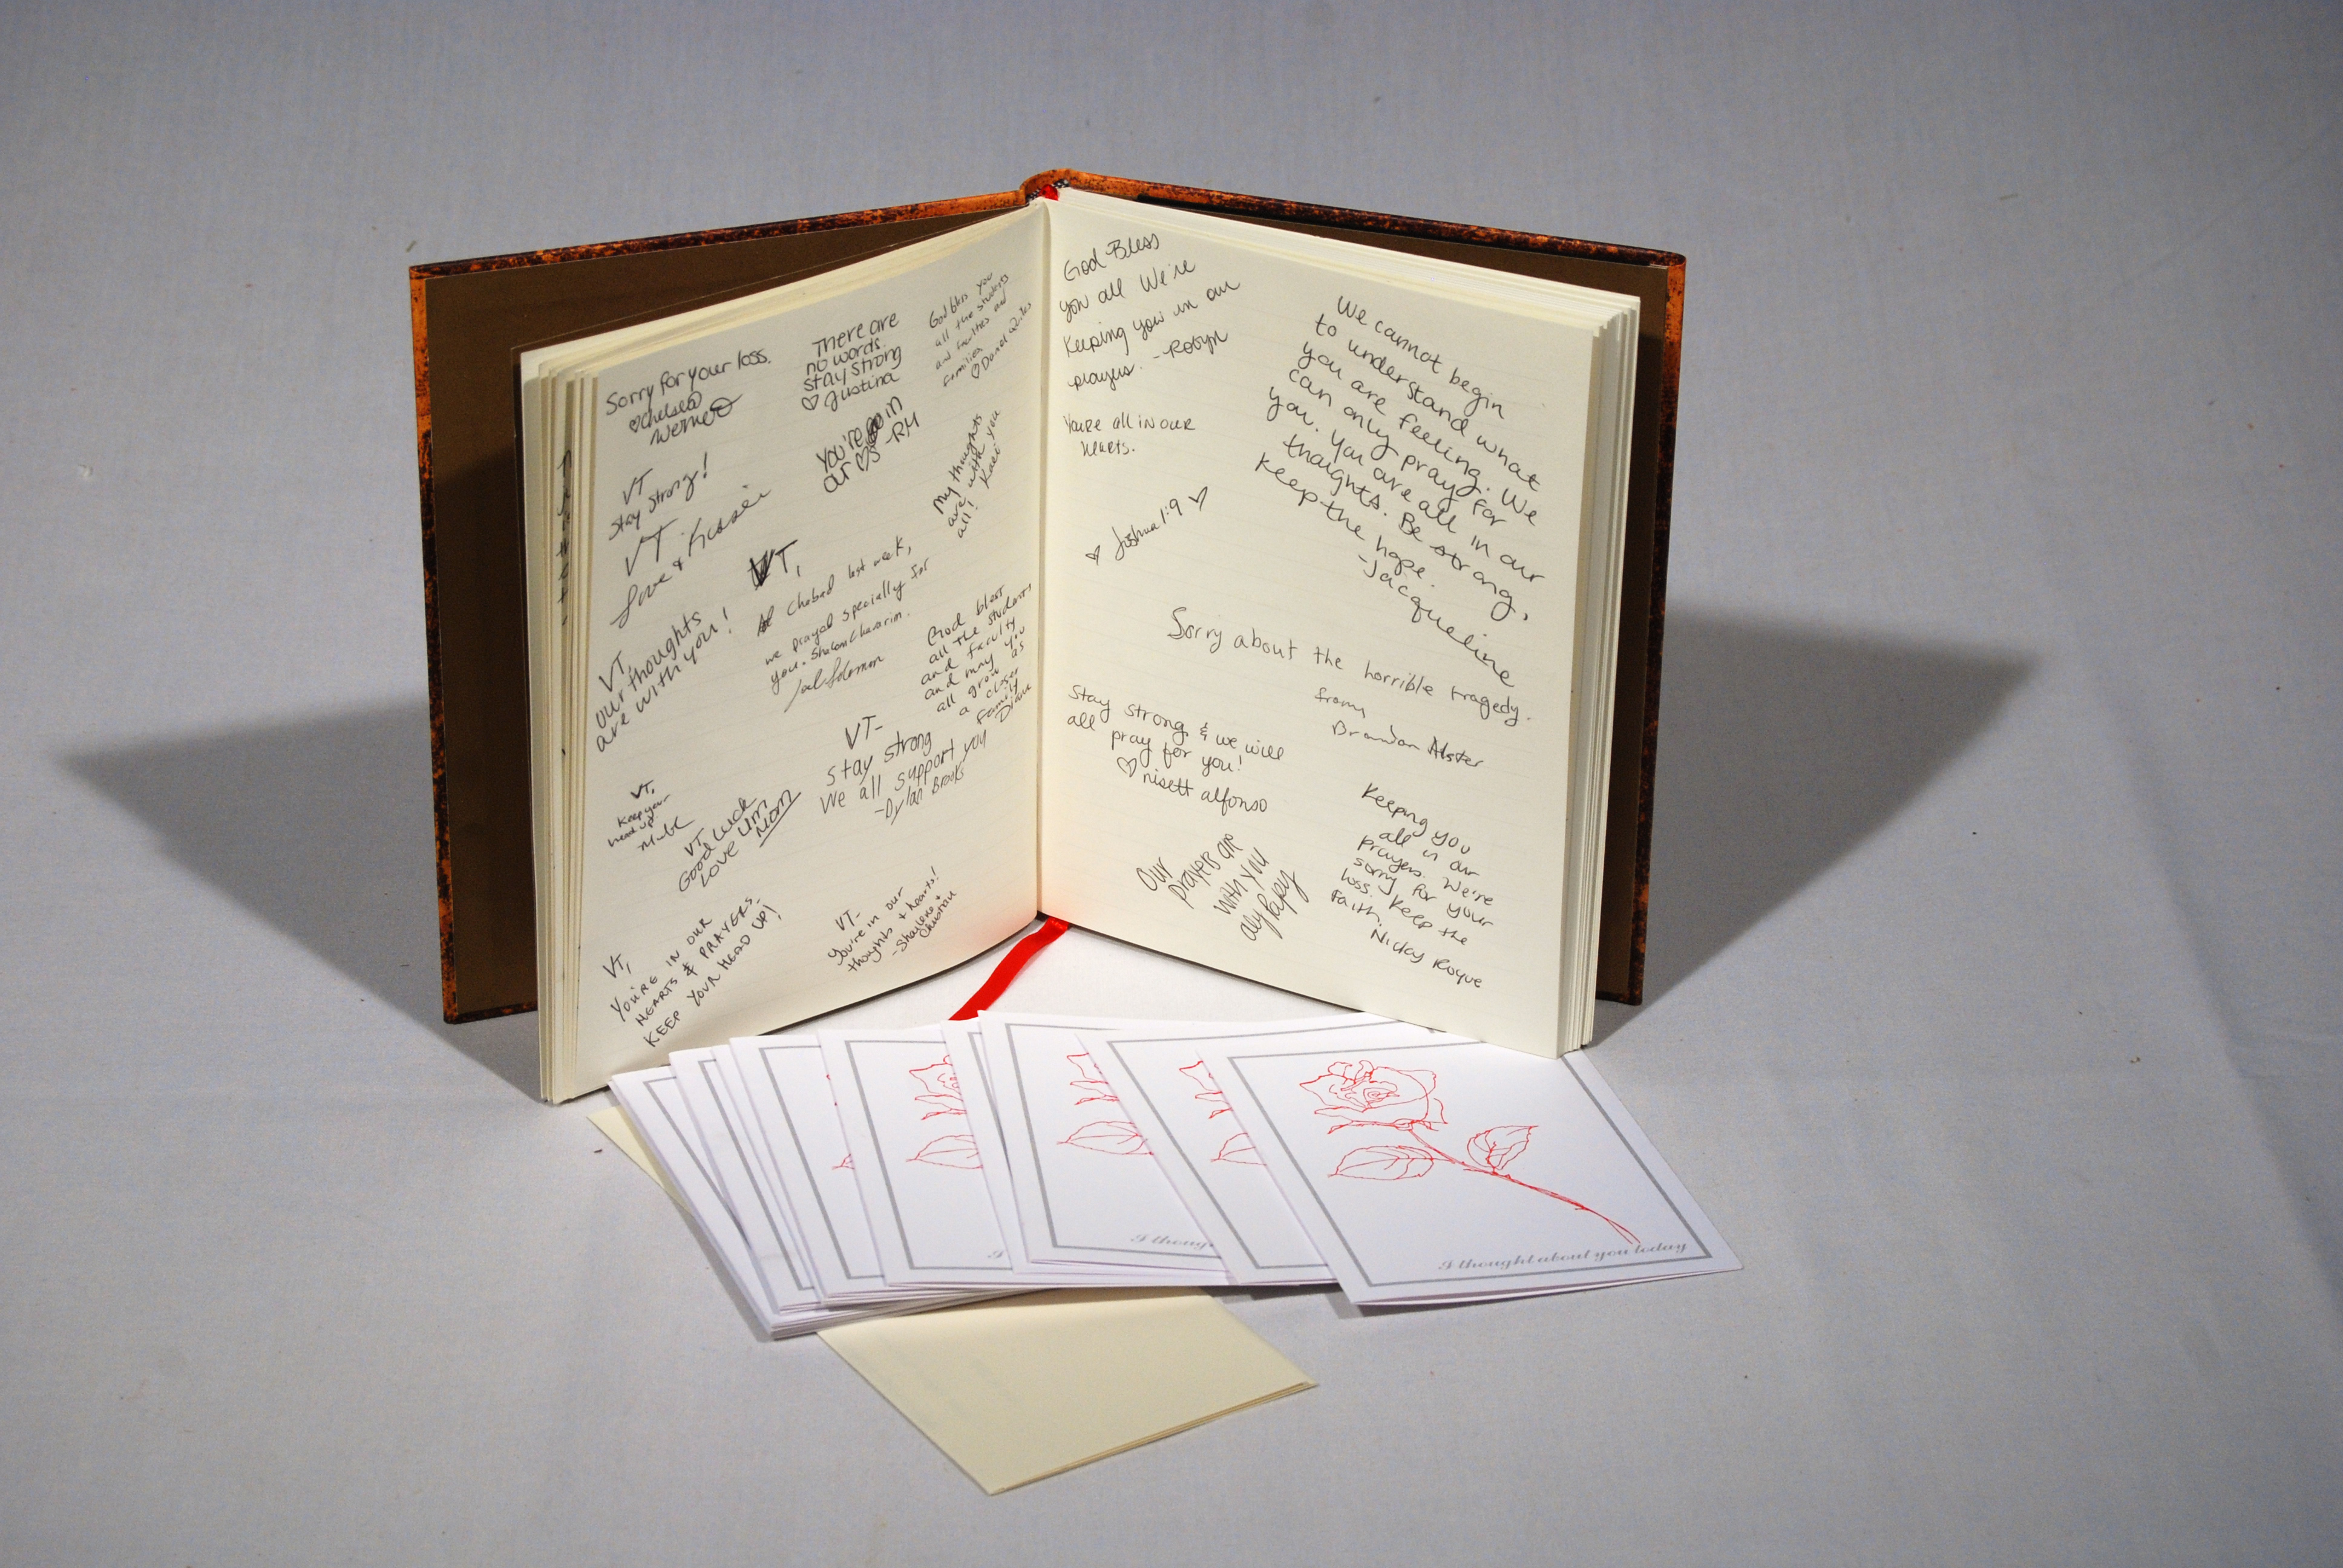 Sorry for your loss.
♡Chelsea
VT
Stay Strong!
VT
Love
VT,
our thoughts
are with you!
VT,
Keep your
head up!
VT,
Good Luck
Love
Mom
VT,
YOU'RE IN OUR
HEARTS & PRAYERS.
KEEP YOUR HEAD UP!
There are
no words.
stay strong
♡ Justina
You're in
our ♡s -RH
VT,
Chabad last week,
we prayed specially for
you.
Solomon
VT-
stay strong
We all support you
-Dylan Brooks
VT-
You're in our
thoughts + hearts!
-Shaylene +
Christian
God bless you
all the students
and faculties and
families
♡Daniel
My thoughts
are with you
all! Kaei
God blest
all the students
and faculty
and may you
all grow as
a closer
family
Diane
God Bless
you all We're
Keeping you in our
prayers. -Robyn
You're all in our
hearts.
♡ Joshua 1:9 ♡
We cannot begin
to understand what
you are feeling. We
can only pray for
you. You are all in our
thoughts. Be strong,
keep the hope.
-Jacqueline
Sorry about the horrible tragedy.
from
Brandon Alster
Stay strong & we will
all pray for you!
♡ nisett alfonso
Our
prayers are
with you
aly Pappy
Keeping you
all in our
prayers. We're
sorry for your
loss. Keep the
Faith.
Nicky Roque
I thoug
I thought about you today